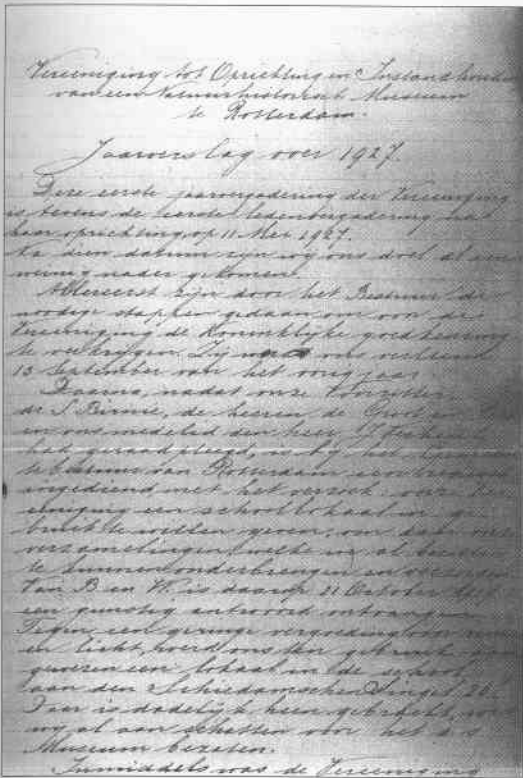 Vereeniging tot Oprichting en Instandhouding
van een Natuurhistorisch Museum
te Rotterdam.
Jaarverslag over 1927.
Deze eerste jaarvergadering der Vereeniging
is tevens de eerste ledenvergadering na
haar oprichting op 11 Mei 1927.
Na dien datum zijn wij ons doel al een
weinig nader gekomen.
Allereerst zijn door het Bestuur de
noodige stappen gedaan om voor de
Vereeniging de Koninklijke goedkeuring
te verkrijgen. Zij ons verleend
13 September van het vorig jaar
Daarna, nadat onze Voorzitter
dr. S. Birnie, de heeren de Groot en
en ons medelid den heer
had geraadpleegd, is bij het
bestuur van Rotterdam een
ingediend met het verzoek, onze
eeniging een schoollokaal in ge
bruik te willen geven, om daar onze
verzamelingen, welke wij al bezitten
te kunnen onderbrengen en
Van B en W. is daarop 21 October
een gunstig antwoord ontvangen.
Tegen een geringe vergoeding voor
en licht, werd ons ten gebruike
gewezen een lokaal in de school
aan den Schiedamschen Singel 26.
Daar is dadelijk heen gebracht, wat
wij al aan schatten voor het a.s.
Museum bezaten.
Inmiddels was de Vereeniging